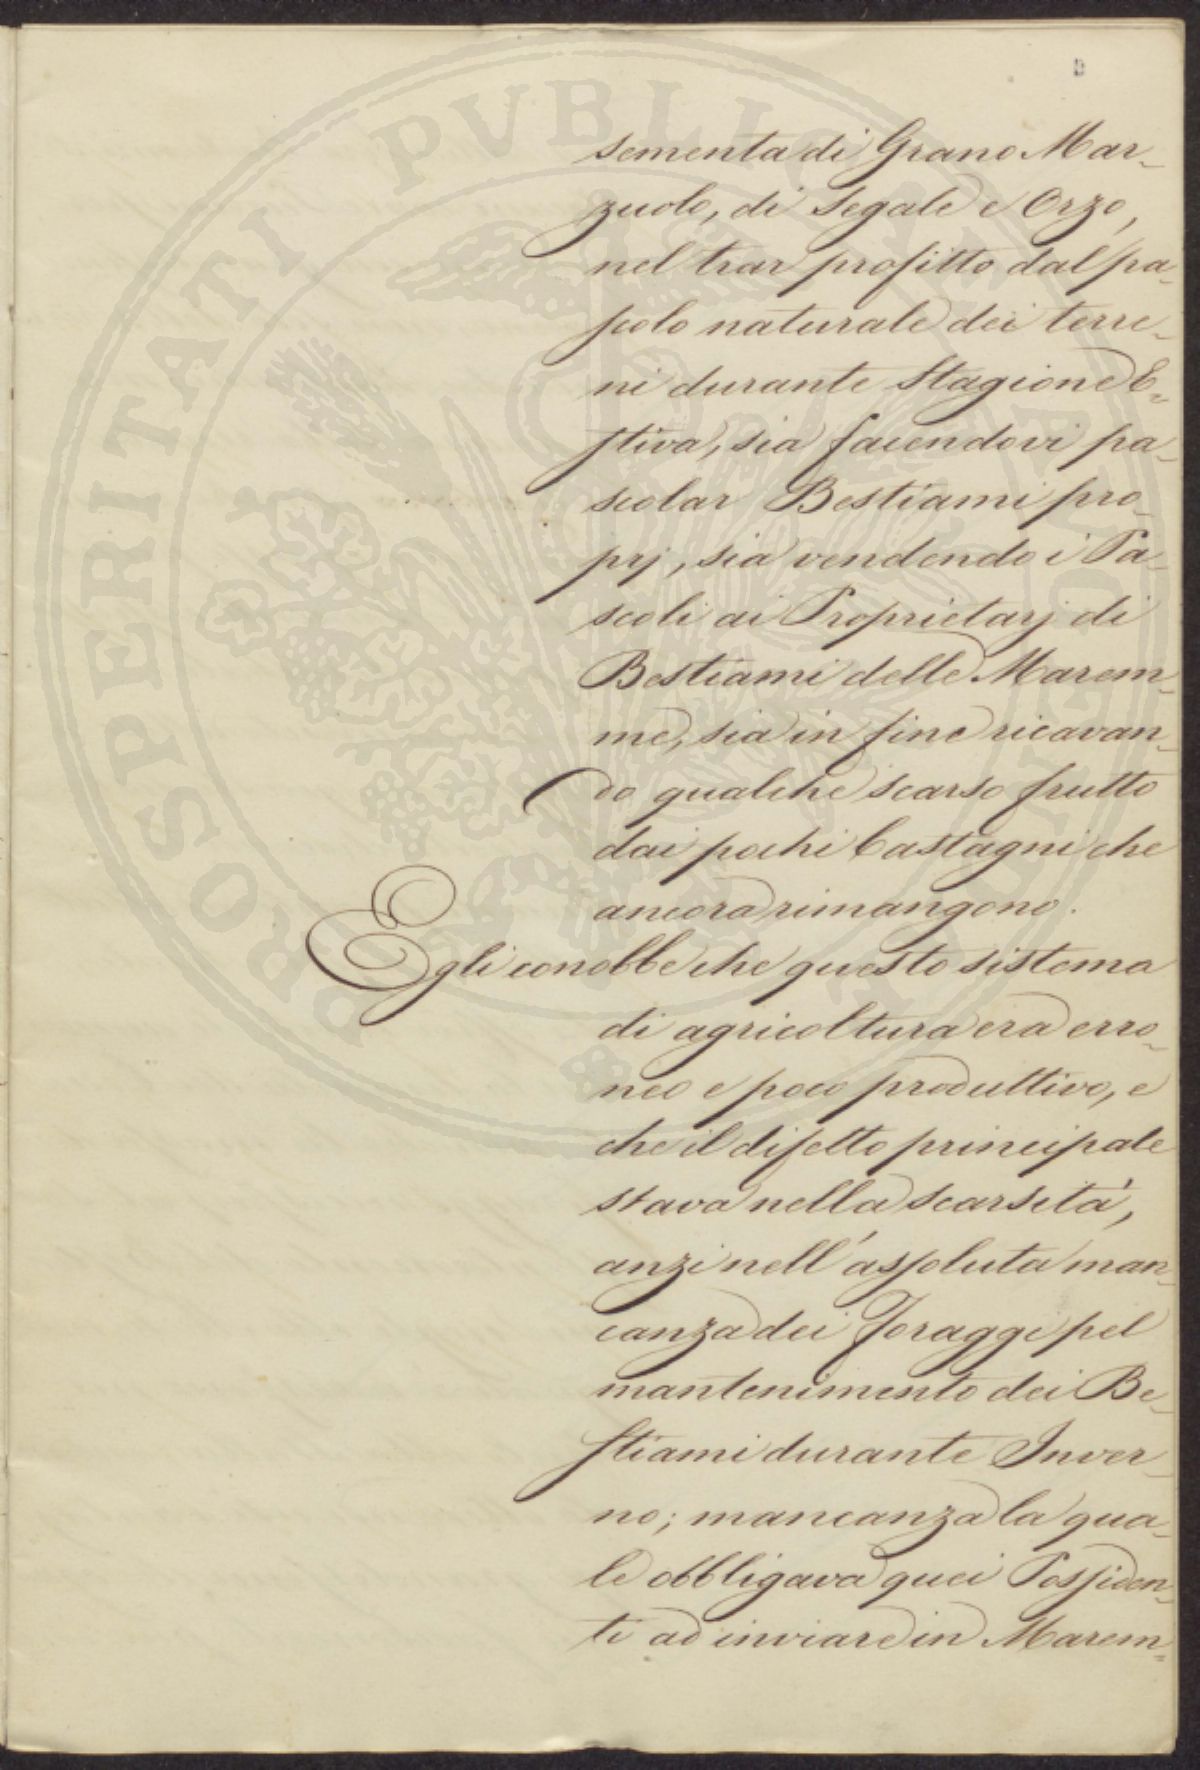 PROSPERITATI PVBLICAE AVGENDAE
sementa di Grano Mar-
zuolo, di Segale e Orzo,
nel trar profitto dal pa-
scolo naturale dei terre-
ni durante Stagione E-
stiva, sia facendovi pa-
scolar Bestiami pro-
prj, sia vendendo i Pa-
scoli ai Proprietarj di
Bestiami delle Marem-
me, sia in fine ricavan-
do qualche scarso frutto
dai pochi Castagni che
ancora rimangono.
Egli conobbe che questo sistema
di agricoltura era erro-
neo e poco produttivo, e
che il difetto principale
stava nella scarsità,
anzi nell'assoluta man-
canza dei Foraggi pel
mantenimento dei Be-
stiami durante Inver-
no; mancanza la qua-
le obbligava quei Possiden-
ti ad inviare in Marem-